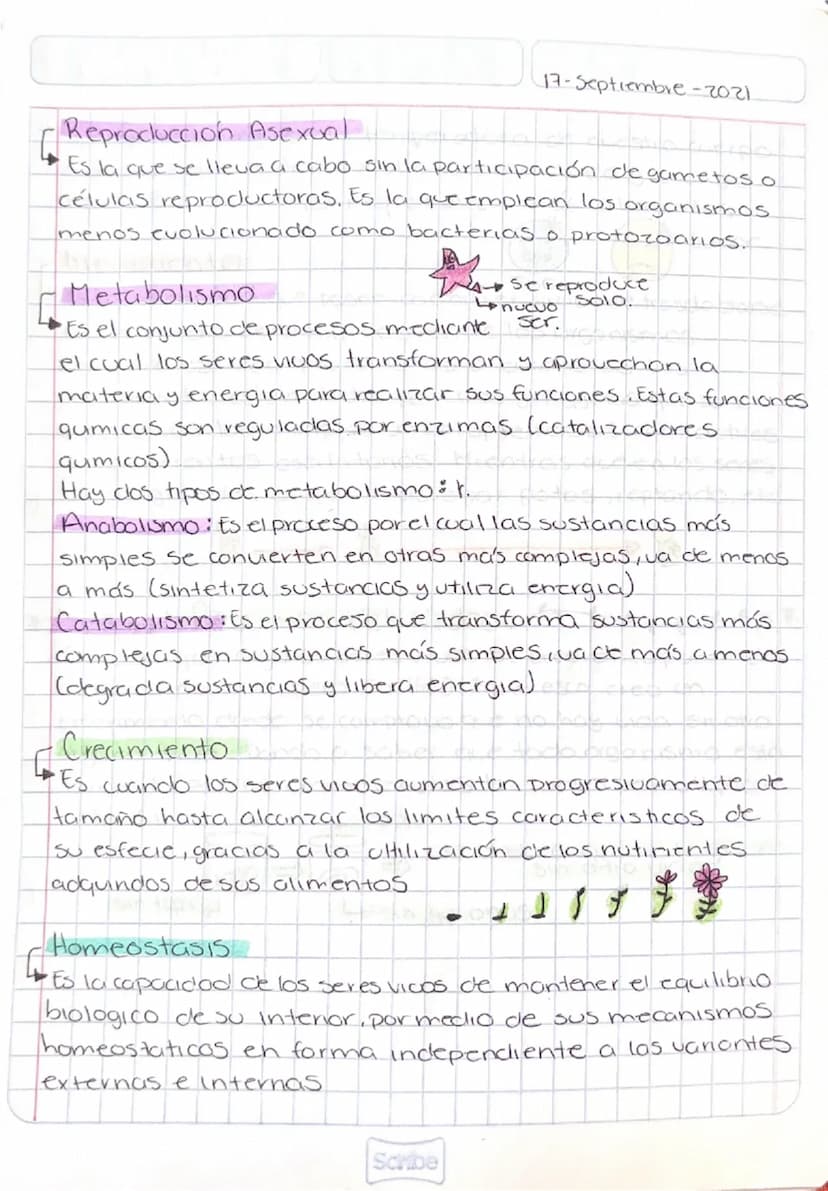 17-Septiembre-2021
Reproducción Asexual
Es la que se lleva a cabo sin la participación de gametos o
células reproductoras. Es la que emplean los organismos
menos evolucionado como bacterias o protozoarios.
se reproduce
solo.
nuevo
ser.
Metabolismo
Es el conjunto de procesos mediante
el cual los seres vivos transforman y aprovechan la
materia y energia para realizar sus funciones. Estas funciones
qumicas son reguladas por enzimas (catalizadores
qumicos)
Hay dos tipos de metabolismo:
Anabolismo: Es el proceso por el cual las sustancias más
simples se convierten en otras más complejas, va de menos
a más (sintetiza sustancias y utiliza energia)
Catabolismo: Es el proceso que transforma sustancias más
complejas en sustancias más simples, va de más a menos
(degrada sustancias y libera energia)
Crecimiento
Es cuando los seres vivos aumentan progresivamente de
tamaño hasta alcanzar los limites caracteristicos de
su esfecie, gracias a la utilización de los nutrientes
adquiridos de sus alimentos
Homeostasis
Es la capacidad de los seres vivos de mantener el equilibrio
biologico de su interior, por medio de sus mecanismos
homeostaticos en forma independiente a las variantes
externas e internas
Scribe